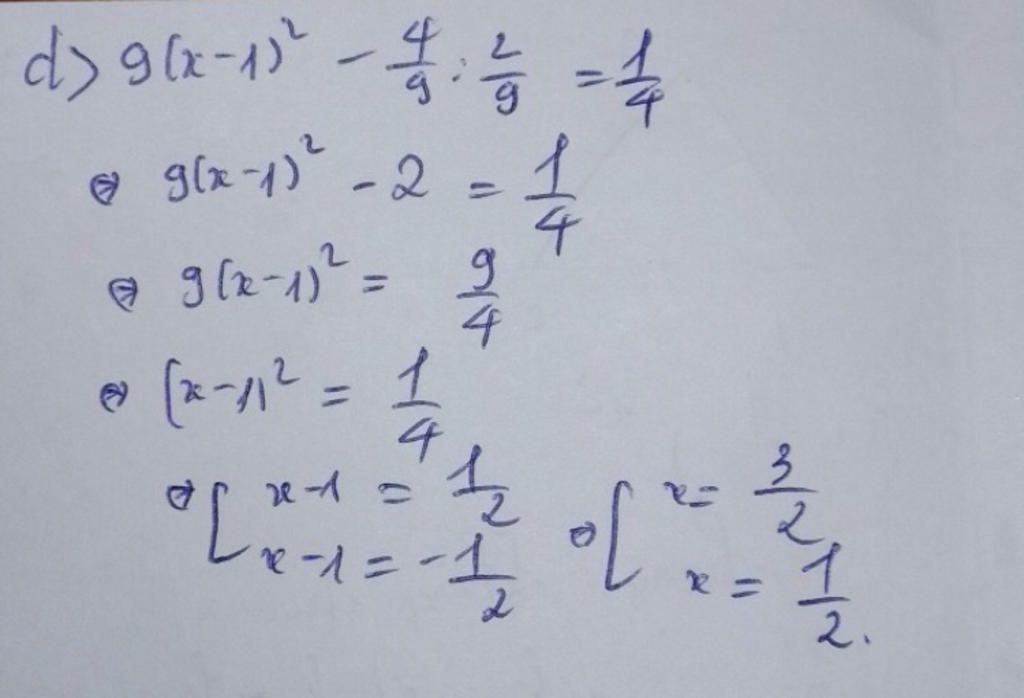 d> 9(x-1)² - 4/9 : 2/9 = 1/4
⇔ 9(x-1)² - 2 = 1/4
⇔ 9(x-1)² = 9/4
⇔ (x-1)² = 1/4
⇔ [ x-1 = 1/2 ⇔ [ x = 3/2
x-1 = -1/2 x = 1/2.